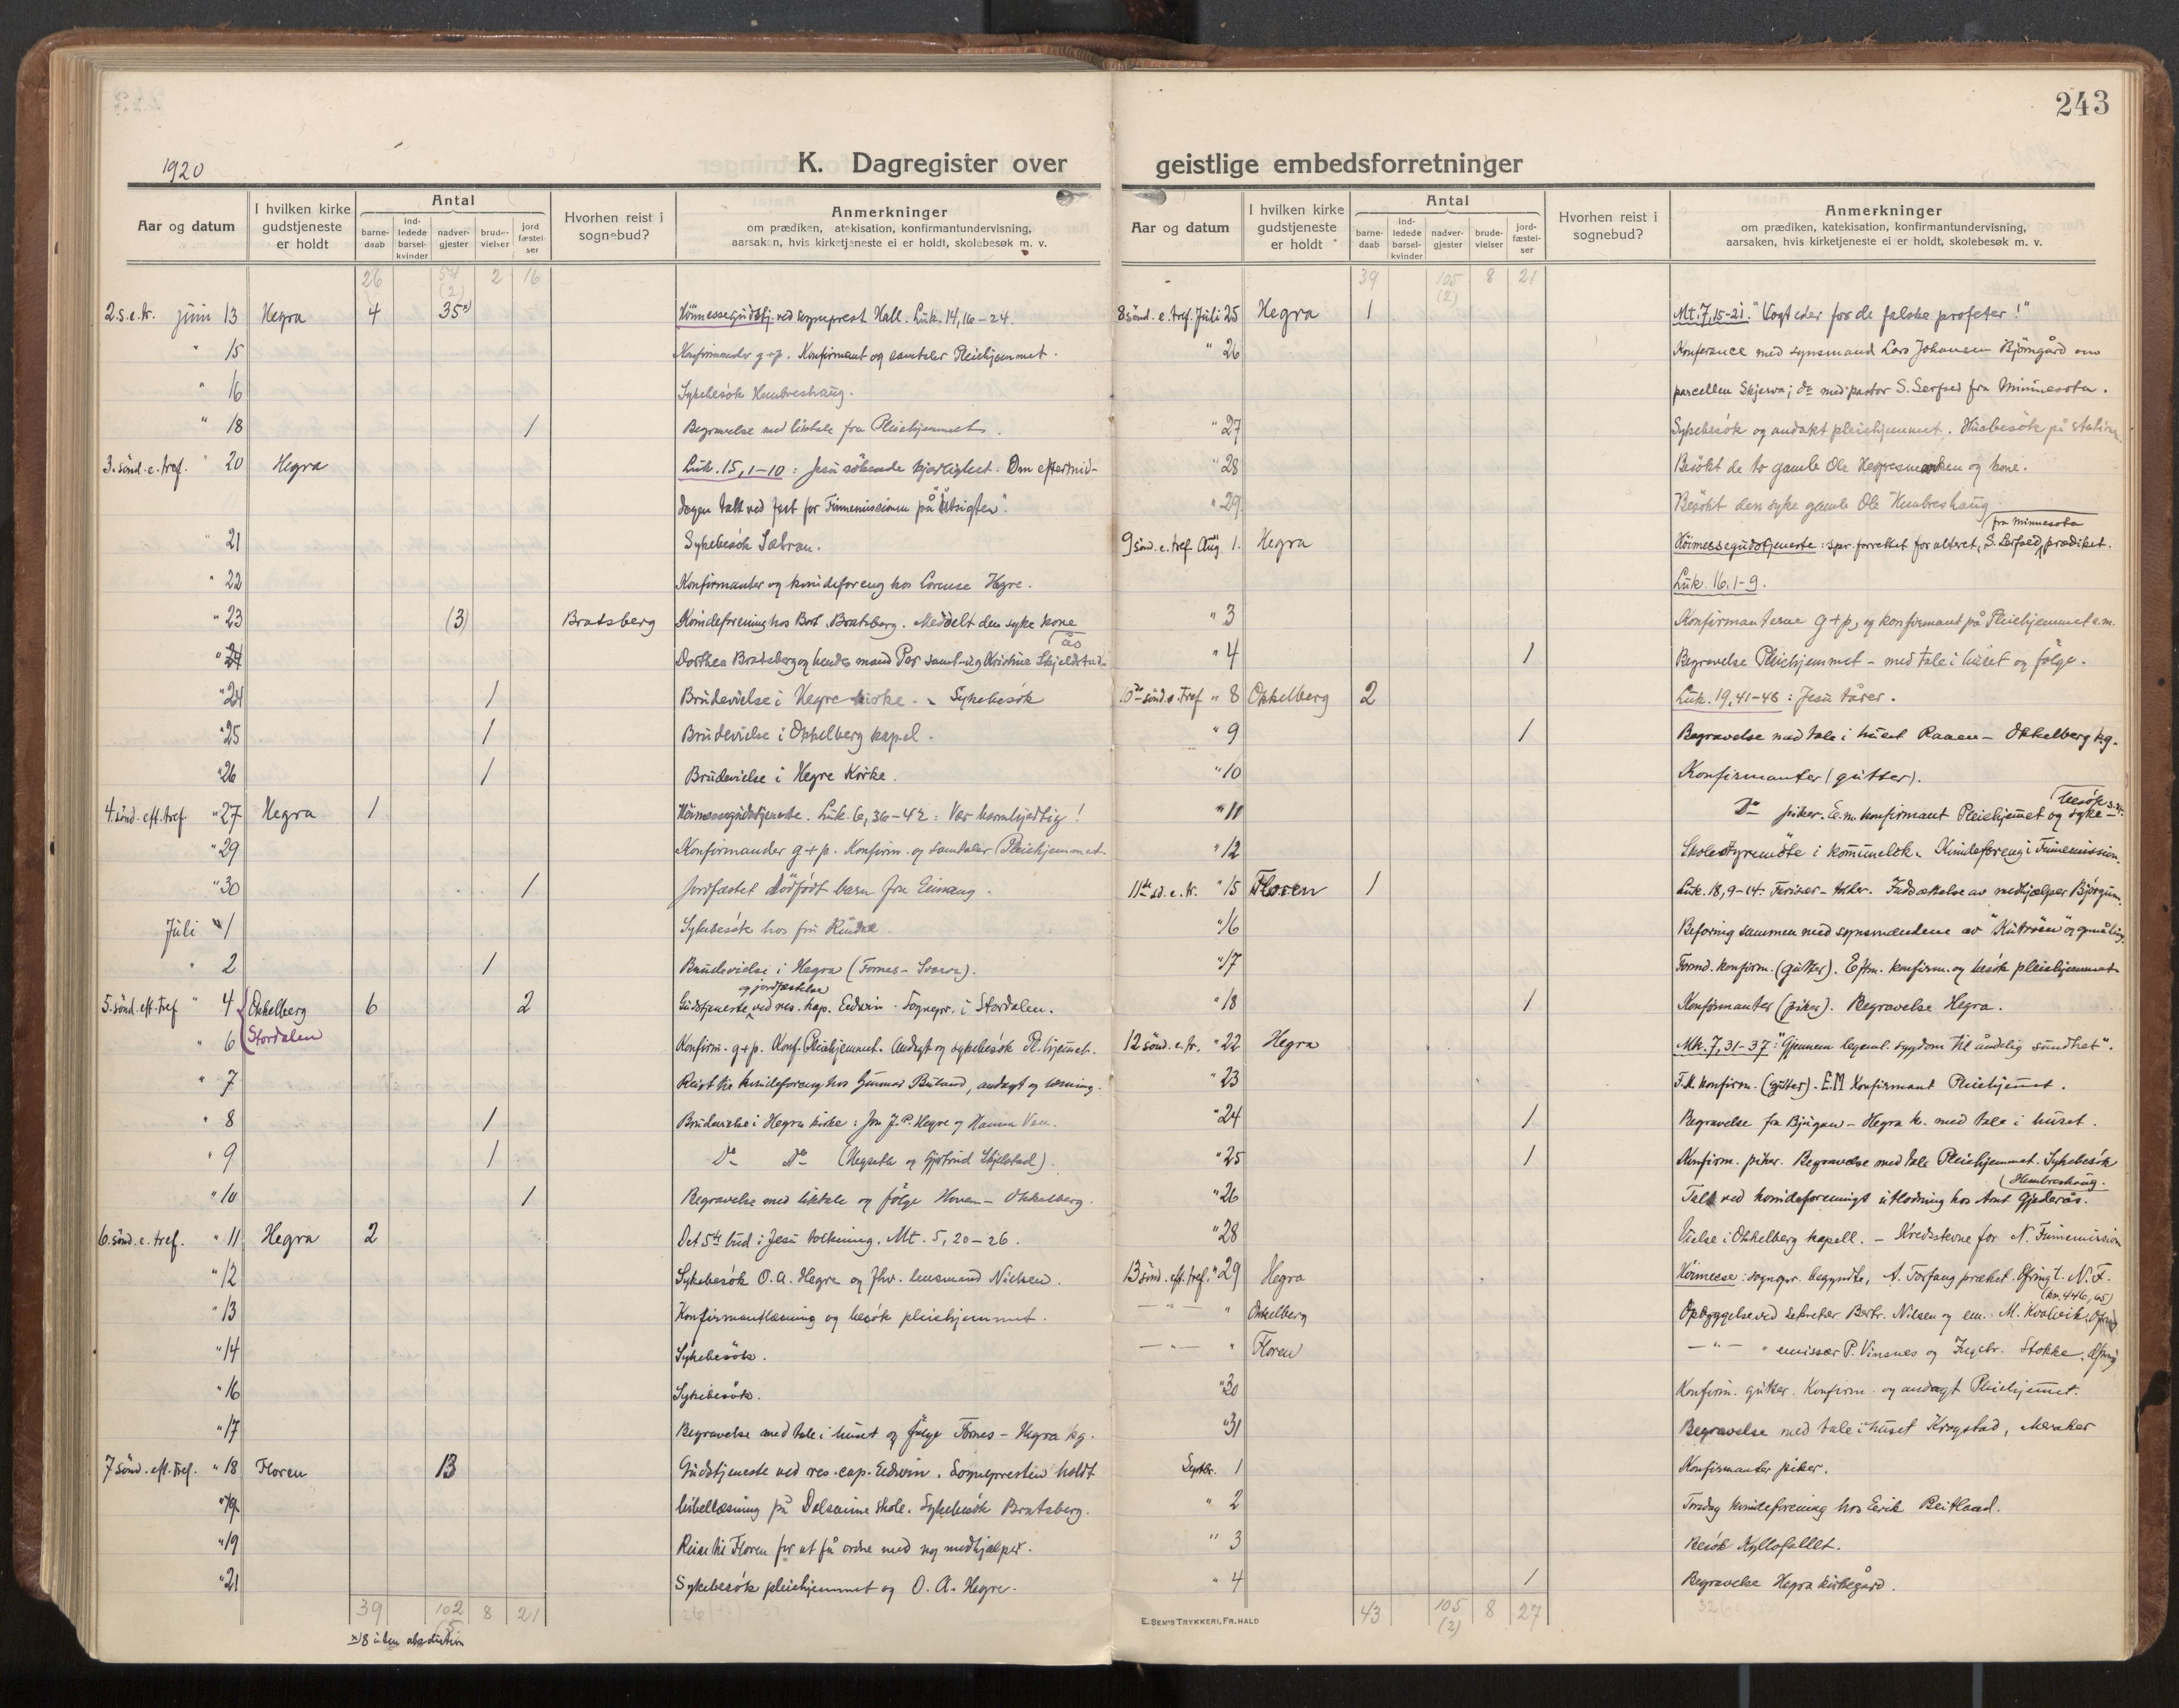 243
1920
K. Dagregister over geistlige embedsforretninger
Aar og datum
I hvilken kirke gudstjeneste er holdt
Antal
barne-daab
ind-ledede barsel-kvinder
nadver-gjester
brude-vielser
jord fæstel-ser
Hvorhen reist i sognebud?
Anmerkninger
om prædiken, katekisation, konfirmantundervisning,
aarsaken, hvis kirketjeneste ei er holdt, skolebesøk m. v.
26 54 (2) 2 16
2.s.e.tr. juni 13 Hegra 4 35 x) Höimessegudstj. ved sogneprest Hall. Luk. 14,16-24.
" 15 Konfirmander g+p. Konfirmant og samtaler Pleiehjemmet.
" 16 Sykebesök Hembreshaug.
" 18 1 Begravelse med liktale fra Pleiehjemmet.
3. sönd. e. tref. " 20 Hegra Luk. 15, 1-10: Jesu sökende kjærlighet. Om eftermid-
dagen talt ved fest for Finnemissionen på "Utsigten".
" 21 Sykebesök
" 22 Konfirmanter og kvindeforeng hos Lorense Hegre.
" 23 (3) Bratsberg Kvindeforening hos Bratsberg. Meddelt den syke kone
" 24 Dorthea Bratsberg og hendes mand Per samt Kristina Skjeldstad-
ås
" 24 1 Brudevielse i Hegre kirke. - Sykebesök
" 25 1 Brudevielse i Okkelberg kapel.
" 26 1 Brudevielse i Hegre Kirke.
4. sönd. eft. tref. " 27 Hegra 1 Höimessegudstjeneste. Luk. 6, 36-42: Vær barmhjertig!
" 29 Konfirmander g+p. Konfirm. og samtaler Pleiehjemmet
" 30 1 Jordfæstet dödfödt barn fra
Juli 1 Sykebesök hos fru
" 2 1 Brudevielse i Hegra (Fornes-
og jordfæstelse
5. sönd. eft. tref " 4 Okkelberg 6 2 Gudstjeneste ved res. kap. Eidwin. Sognepr. i Stordalen.
" 6 Stordalen Konfirm. g+p. Konf. Pleiehjemmet. Andagt og sykebesök Pl. hjemmet.
" 7 Reist til kvindeforeng hos Gunnar andagt og læsning.
" 8 1 Brudevielse i Hegra kirke: Jon J. P. Hegre og Hanna
" 9 1 Do Do (Hegseth og Gjertrud Skjelstad).
" 10 1 Begravelse med liktale og fölge Hoven - Okkelberg.
6. sönd. e. tref. " 11 Hegra 2 Det 5te bud i Jesu tolkning. Mt. 5, 20-26.
" 12 Sykebesök O. A. Hegre og fhv. lensmand Nielsen.
" 13 Konfirmantlæsning og besök pleiehjemmet.
" 14 Sykebesök.
" 16 Sykebesök.
" 17 Begravelse med tale i huset og fölge Fornes - Hegra kg.
7 sönd. eft. tref. " 18 Floren 13 Gudstjeneste ved res. cap. Eidwin. Sognepresten holdt
" 19 bibellæsning på skole. Sykebesök Bratsberg.
" 19 Reise til Floren for at få ordne med ny medhjælper.
" 21 Sykebesök pleiehjemmet og O. A. Hegre.
39 102 (5) 8 21
x) 8 uten absolution
Aar og datum
I hvilken kirke gudstjeneste er holdt
Antal
barne-daab
ind-ledede barsel-kvinder
nadver-gjester
brude-vielser
jord-fæstel-ser
Hvorhen reist i sognebud?
Anmerkninger
om prædiken, katekisation, konfirmantundervisning,
aarsaken, hvis kirketjeneste ei er holdt, skolebesøk m. v.
39 105 (2) 8 21
8 sönd. e. tref. Juli 25 Hegra 1 Mt. 7, 15-21. "Vogt eder for de falske profeter!"
" 26 Konferance med synsmand Lars Johansen Björngård om
parcellen Skjerva; do med pastor S. fra Minnesota.
" 27 Sykebesök og andakt pleiehjemmet. Husbesök på
" 28 Besökt de to gamle Ole Hegresmarken og kone.
" 29 Besökt den syke gamle Ole Hembreshaug
fra Minnesota
9 sönd. e. tref. Aug 1. Hegra Höimessegudstjeneste: spr. forrettet for alteret, S. prædiket.
Luk. 16. 1-9.
" 3 Konfirmanterne g+p, og konfirmant på Pleiehjemmet e.m.
" 4 1 Begravelse Pleiehjemmet - med tale i huset og fölge.
10de sönd. e. tref " 8 Okkelberg 2 Luk. 19, 41-48: Jesu tårer.
" 9 1 Begravelse med tale i huset Raaen - Okkelberg kg.
" 10 Konfirmanter (gutter).
" 11 Do piker. E.m. konfirmant Pleiehjemmet og syke-
besök
" 12 Skolestyremöte i kommunelok. Kvindeforeng i Finnemission.
11te sd. e. tr. " 15 Floren 1 Luk. 18, 9-14. Fariseer - tolder. Indsættelse av medhjælper
" 16 Befaring sammen med synsmændene av
" 17 Formd. konfirm. (gutter). Eftm. konfirm. og besök pleiehjemmet
" 18 1 Konfirmanter (piker). Begravelse Hegra.
12 sönd. e. tr. " 22 Hegra Mk. 7, 31-37: "Gjennem legeml. sygdom til åndelig sundhet".
" 23 F.M. konfirm. (gutter). E.M Konfirmant Pleiehjemmet.
" 24 1 Begravelse fra - Hegra k. med tale i huset.
" 25 1 Konfirm. piker. Begravelse med tale Pleiehjemmet. Sykebesök
Hembreshaug.
" 26 Talt ved kvindeforeningt utlodning hos Arnt Gjederås.
" 28 Vielse i Okkelberg kapell. - Kredsstevne for N. Finnemission
13 sönd. eft. tref. " 29 Hegra Höimesse: sognepr. begyndte, A. Torfang præket. Ofring t. N.F.
(kr. 446,65)
" Okkelberg Opbyggelse ved sekretær Bertr. Nilsen og em. M. Kvalvik.
" Floren " emissær P. Vinsnes og Ingebr. Stokke. Ofring
" 30 Konfirm. gutter. Konfirm. og andagt Pleiehjemmet.
" 31 Begravelse med tale i huset Krogstad, Meraker
Septbr. 1 Konfirmanter piker.
" 2 Torsdag kvindeforening hos Eirik Beitland.
" 3 Besök Kyllofallet.
" 4 1 Begravelse Hegra kirkegård.
43 105 (2) 8 27
E. SEM'S TRYKKERI, FR.HALD